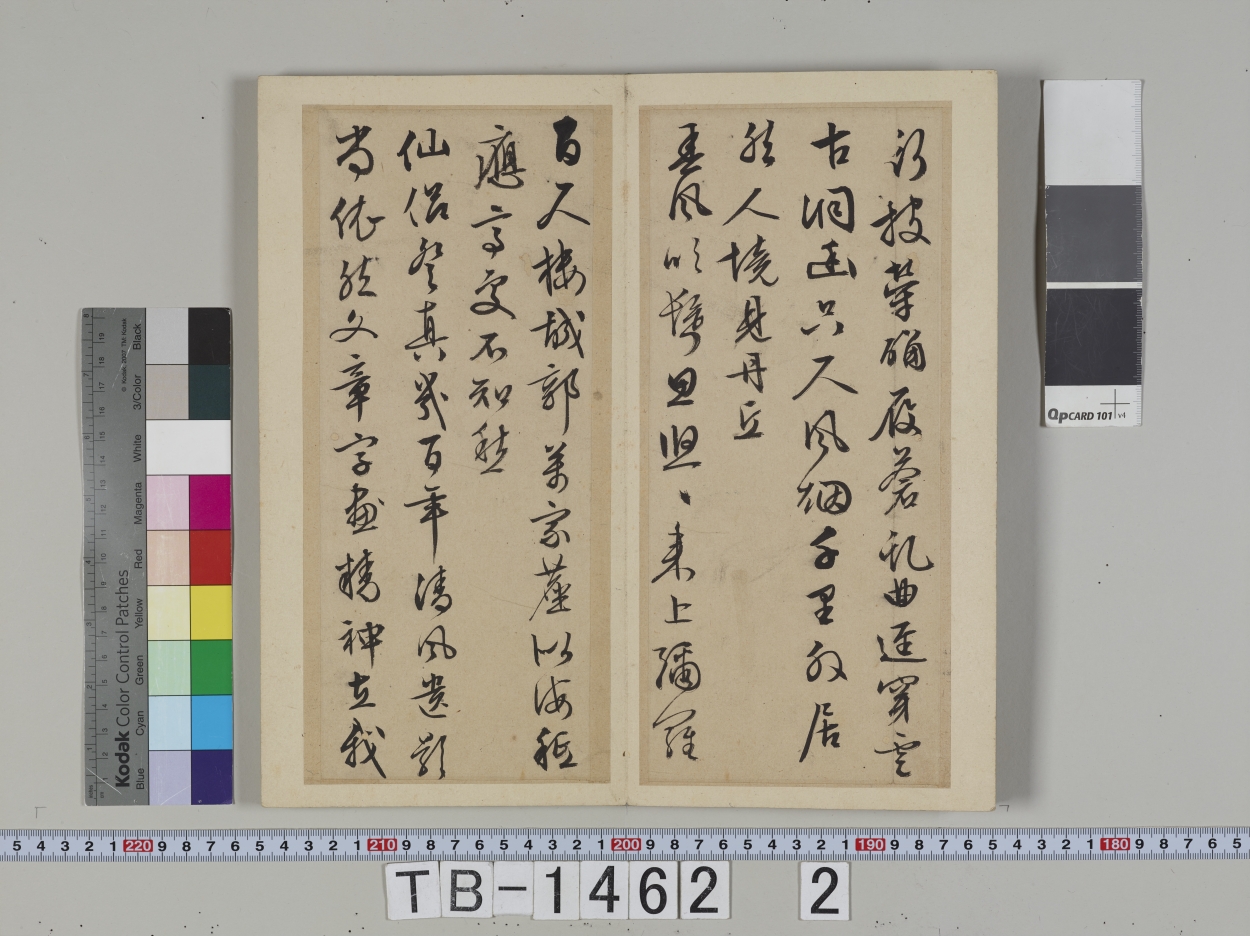 行披犖确履蒼虬曲逕穿雲
古洞幽只尺風烟千里外居
然人境見丹丘
春風吹鬢思悠〻来上彌羅
百尺樓城郭萬家塵似海秪
應高處不知愁
仙侶登真幾百年清風遺影
尚依然文章字畫精神在我
Kodak Color Control Patches
© Kodak, 2007 TM: Kodak
Blue Cyan Green Yellow Red Magenta White 3/Color Black
QpCARD 101 v4
5 4 3 2 1 220 9 8 7 6 5 4 3 2 1 210 9 8 7 6 5 4 3 2 1 200 9 8 7 6 5 4 3 2 1 190 9 8 7 6 5 4 3 2 1 180 9 8 7 6 5
TB-1462 2